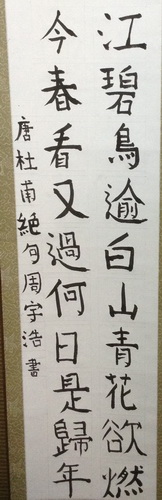 江碧鳥逾白山青花欲燃
今春看又過何日是歸年
唐杜甫絕句周字浩書